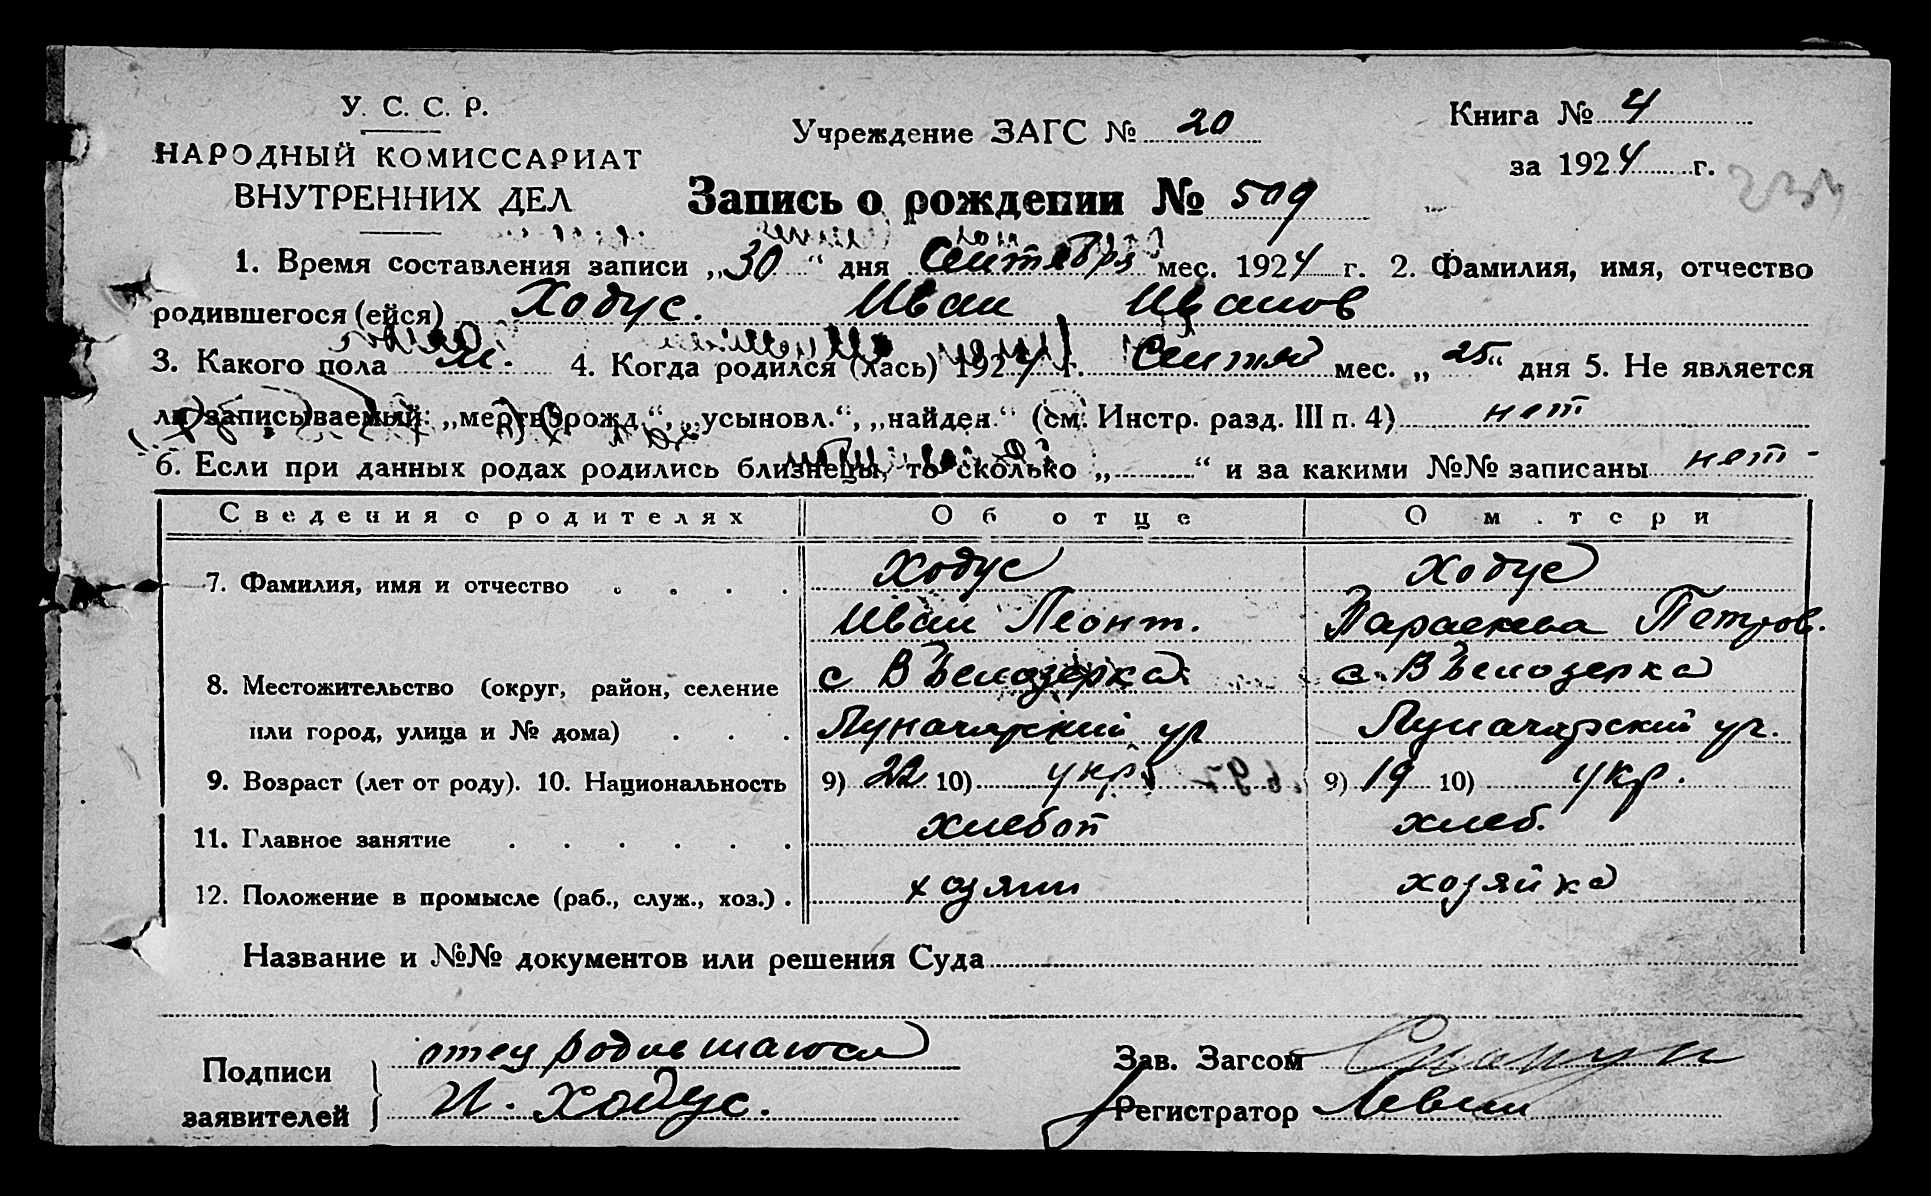 У. С. С. Р.
НАРОДНЫЙ КОМИССАРИАТ
ВНУТРЕННИХ ДЕЛ
Учреждение ЗАГС № 20
Книга № 4
за 1924 г.
Запись о рождении № 509
1. Время составления записи „30“ дня Сентября мес. 1924 г. 2. Фамилия, имя, отчество
родившегося (ейся) Ходус. Иван Иванов
3. Какого пола м. 4. Когда родился (лась) 1924 г. Сентяб мес. „25“ дня 5. Не является
ли записываемый: „мертворожд.“, „усыновл.“, „найден.“ (см. Инстр. разд. III п. 4) нет
6. Если при данных родах родились близнецы, то сколько „ “ и за какими №№ записаны нет
Сведения о родителях Об отце О м.тери
7. Фамилия, имя и отчество . . . . Ходус Ходус
Иван Леонт. Параскева Петров.
8. Местожительство (округ, район, селение с В Белозерка с. В Белозерка
или город, улица и № дома) . . . Луначарский ул Луначарский ул.
9. Возраст (лет от роду). 10. Национальность 9) 22 10) укр. 9) 19 10) укр.
11. Главное занятие . . . . . . хлебоп хлеб.
12. Положение в промысле (раб., служ., хоз.) . хозяин хозяйка
Название и №№ документов или решения Суда
Подписи
заявителей
отец родившагося
И. Ходус.
Зав. Загсом
Регистратор Левин